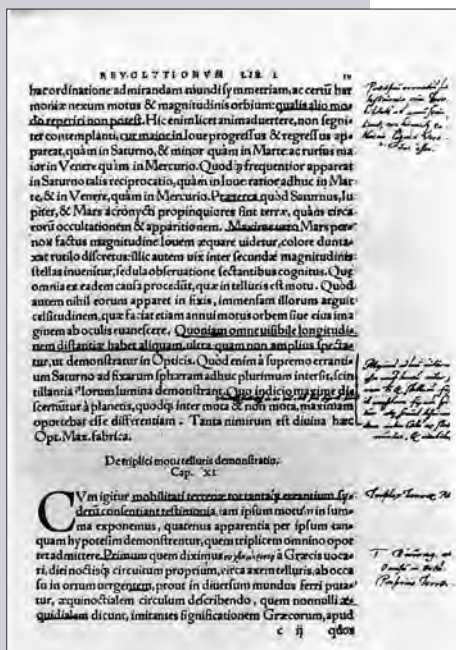 REVOLVTIONVM LIB. I. 10
hac ordinatione admirandam mundi symmetriam, ac certũ har
moniæ nexum motus & magnitudinis orbium: qualis alio mo
do reperiri non potest. Hic enim licet animaduertere, non segni
ter contemplanti, cur maior in Ioue progressus & regressus ap
pareat, quàm in Saturno, & minor quàm in Marte: ac rursus ma
ior in Venere quàm in Mercurio. Quodq; frequentior appareat
in Saturno talis reciprocatio, quàm in Ioue: rarior adhuc in Mar
te, & in Venere, quàm in Mercurio. Præterea quòd Saturnus, Iu
piter, & Mars acronycti propinquiores sint terræ, quàm circa
eorũ occultationem & apparitionem. Maxime uero Mars per
nox factus magnitudine Iouem æquare uidetur, colore dunta
xat rutilo discretus: illic autem uix inter secundæ magnitudinis
stellas inuenitur, sedula obseruatione sectantibus cognitus. Quæ
omnia ex eadem causa procedũt, quæ in telluris est motu. Quòd
autem nihil eorum apparet in fixis, immensam illorum arguit
celsitudinem, quæ faciat etiam annui motus orbem siue eius ima
ginem ab oculis euanescere. Quoniam omne uisibile longitudi
nem distantiæ habet aliquam, ultra quam non amplius specta
tur, ut demonstratur in Opticis. Quòd enim à supremo errantiũ
Saturno ad fixarum sphæram adhuc plurimum intersit, scin
tillantia illorum lumina demonstrant. Quo indicio maxime dis
cernũtur à planetis, quodq; inter mota & non mota, maximam
oportebat esse differentiam. Tanta nimirum est diuina hæc
Opt. Max. fabrica.
De triplici motu telluris demonstratio.
Cap. XI.
CVm igitur mobilitati terrenæ tot tantaq; errantium sy
derũ consentiant testimonia, iam ipsum motum in sum
ma exponemus, quatenus apparentia per ipsum tan
quam hypotesim demonstrentur, quem triplicem omnino opor
tet admittere. Primum quem diximus à Græcis uoca
ri, diei noctisq; circuitum proprium, circa axem telluris, ab occa
su in ortum uergentem, prout in diuersum mundus ferri puta
tur, æquinoctialem circulum describendo, quem nonnulli æ
quidialem dicunt, imitantes significationem Græcorum, apud
c ij quos